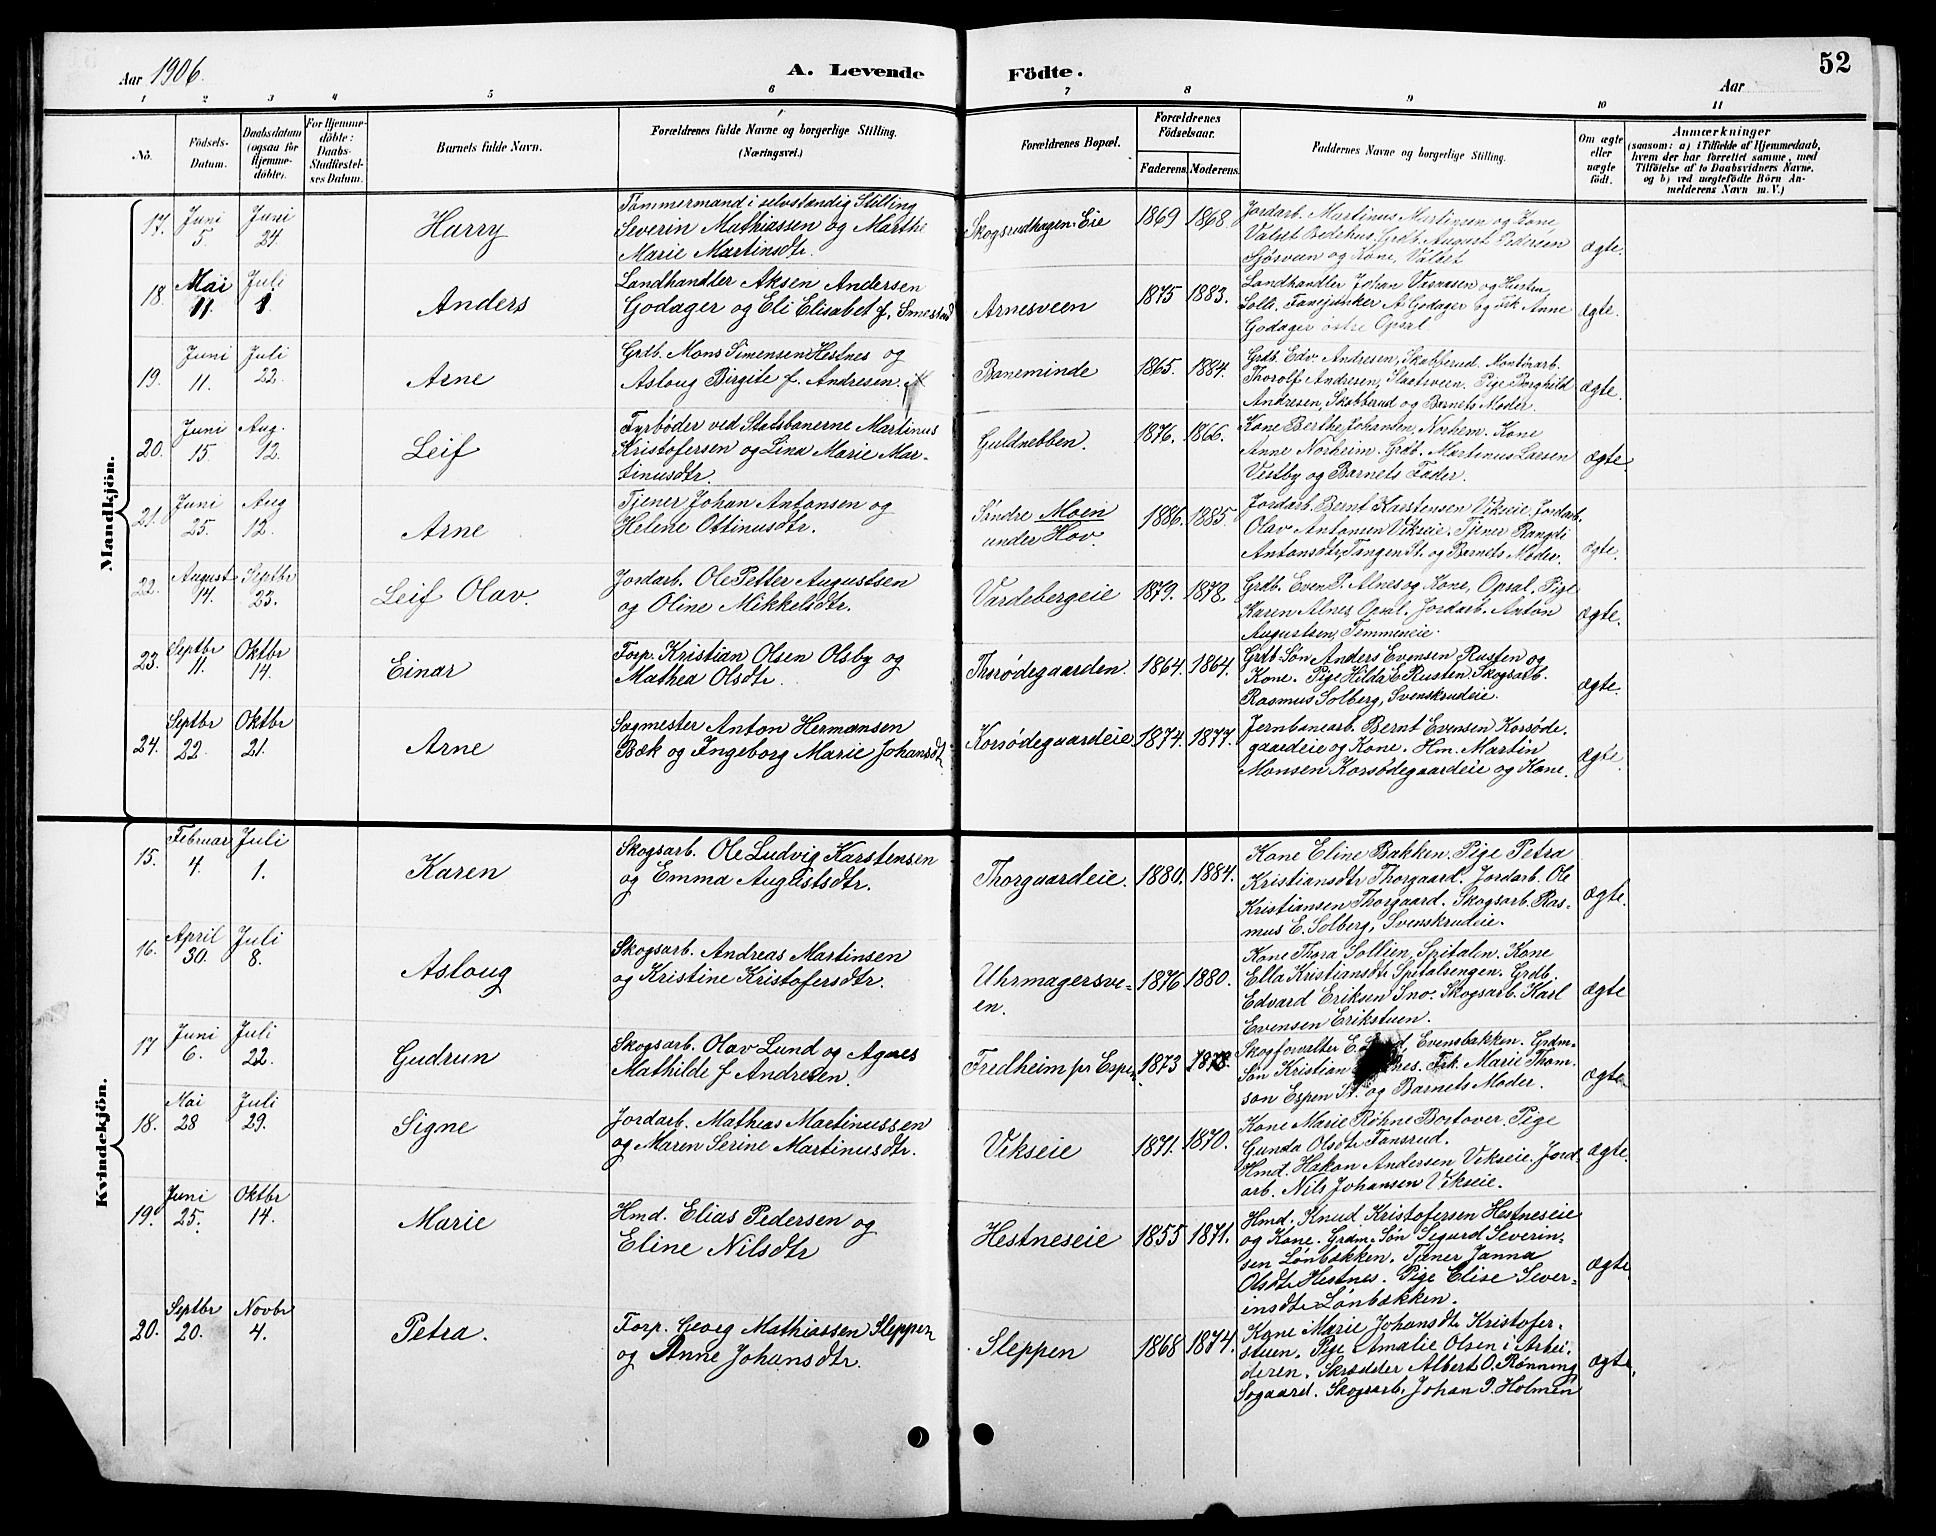 Aar 1906.
A. Levende Födte.
Aar
52
1 2 3 4 5 6 7 8 9 10 11
No.
Födsels-
Datum.
Daabsdatum
(ogsaa for
Hjemme-
döbte).
For Hjemme-
döbte:
Daabs-
Stadfæstel-
ses Datum.
Barnets fulde Navn.
Forældrenes fulde Navne og borgerlige Stilling.
(Næringsvei.)
Forældrenes Bopæl.
Forældrenes
Födselsaar.
Faderens. Moderens.
Faddernes Navne og borgerlige Stilling.
Om ægte
eller
uægte
födt.
Anmærkninger
(saasom: a) i Tilfælde af Hjemmedaab,
hvem der har forrettet samme, med
Tilföielse af to Daabsvidners Navne,
og b) ved uægtefödte Börn An-
melderens Navn m. V.)
Mandkjön.
17. Juni 5. Juni 24
Harry
Tømmermand i selvstændig Stilling
Severin Mathiassen og Marthe
Marie Martinsdtr.
Skogsrudhagen. Eie
1869 1868
Jordarb. Martinus Martinsen og Kone
Valset Bedehus. Grdb. August Pedersen
Sjøsveen og Kone, Valset
ægte.
18. Mai 11. Juli 1
Anders
Landhandler Aksen Andersen
Godager og Eli Elisabet f. Smestad
Arnesveen
1875 1883.
Landhandler Johan and Hustru
Godager østre Opsal
ægte.
19. Juni 11. Juli 22.
Arne
Grdb. Mons Simensen Hestnes og
Asloug Birgite f. Andresen.
Baneminde
1865. 1884.
Grdb. Edv. Andresen, Skabberud. Kontorarb.
Thorolf Andresen, Slaatsveen. Pige Borghild
Andresen, Skabberud og Barnets Moder.
ægte.
20. Juni 15. Aug. 12.
Leif
Fyrbøder ved Statsbanerne Martinus
Kristofersen og Lina Marie Mar-
tinusdtr.
Guldnebben.
1876. 1866.
Kone Berthe Johansen, Norhem. Kone
Anne Norheim. Grdb. Martinus Larsen
Vestby og Barnets Fader.
ægte.
21. Juni 25. Aug 12.
Arne
Tjener Johan Antonsen og
Helene Ottinusdtr.
Søndre Moen
under Hov.
1886. 1885.
Jordarb. Bernt Karstensen Vikseie. Jordarb.
Olav Antonsen Vikseie. Tjener Rangdi
Antonsdtr, Tangen St. og Barnets Moder.
ægte.
22. August 14. Septbr 23.
Leif Olav.
Jordarb. Ole Petter Augustsen
og Oline Mikkelsdtr.
Vardebergeie
1879. 1878.
Grdb. Even P. Alnes og Kone, Opsal. Pige
Karen Alnes, Opsal. Jordarb. Anton
Augustsen,
ægte.
23. Septbr 11. Oktbr 14.
Einar
Forp. Kristian Olsen Olsby og
Mathea Olsdtr.
Thorødegaarden.
1864. 1864.
Grdb. Søn Anders Evensen Rusten og
Kone. Pige Hilda E. Rusten. Skogsarb.
Rasmus Solberg, Svenskrudeie.
ægte.
24. Septbr 22. Oktbr 21.
Arne
Sagmester Anton Hermansen
Bæk og Ingeborg Marie Johansdtr
Korsødegaardeie
1874. 1877.
Jernbanearb. Bernt Evensen Korsøde-
gaardeie og Kone. Hm. Martin
Monsen Korsødegaardeie og Kone.
ægte.
Kvindekjön.
15. Februar 4. Juli 1.
Karen
Skogsarb. Ole Ludvig Karstensen
og Emma Augustsdtr.
Thorgaardeie.
1880. 1884.
Kone Eline Bakken. Pige Petra
Kristiansdtr Thorgaard. Jordarb. Ole
Kristiansen Thorgaard. Skogsarb. Ras-
mus E. Solberg, Svenskrudeie.
ægte.
16. April 30. Juli 8.
Asloug
Skogsarb. Andreas Martinsen
og Kristine Kristofersdtr.
Uhrmagersve-
en.
1876 1880.
Kone Thora Sollien, Spitalen. Kone
Ella Kristiansdtr Spitalsengen. Grdb.
Edvard Eriksen Sno. Skogsarb. Karl
Evensen Erikstuen.
ægte
17 Juni 6. Juli 22.
Gudrun
Skogsarb. Olav Lund og Agnes
Mathilde f Andresen.
Fredheim pr Espen
1873 1878.
Skogforvalter E. Evensbakken. Grdm-
Søn Kristian Frk. Marie Thom-
son Espen St. og Barnets Moder.
ægte.
18. Mai 28 Juli 29.
Signe
Jordarb. Mathias Martinussen
og Maren Serine Martinusdtr.
Vikseie
1871. 1870.
Kone Marie Røhne Bortover. Pige
Gunda Olsdtr Fonsrud.
Hmd. Hakon Andersen Vikseie. Jord-
arb. Nils Johansen Vikseie.
ægte.
19. Juni 25. Oktbr 14.
Marie
Hmd. Elias Pedersen og
Eline Nilsdtr
Hestneseie
1855 1871.
Hmd. Knud Kristofersen Hestneseie
og Kone. Grdm. Søn Sigurd Severin-
sen Lønbækken. Tjener Janna
Olsdtr Hestnes. Pige Elise Sever-
insdtr Lønbækken.
ægte
20. Septbr 20. Novbr 4.
Petra.
Forp. Georg Mathiassen Sleppen
og Anne Johansdtr.
Sleppen
1868 1874.
Kone Marie Johansdtr Kristofer-
stuen. Pige Amalie Olsen i Arbei-
deren. Skrædder Albert O. Rønning
Sogaard. Skogsarb. Johan P. Holmen
ægte.